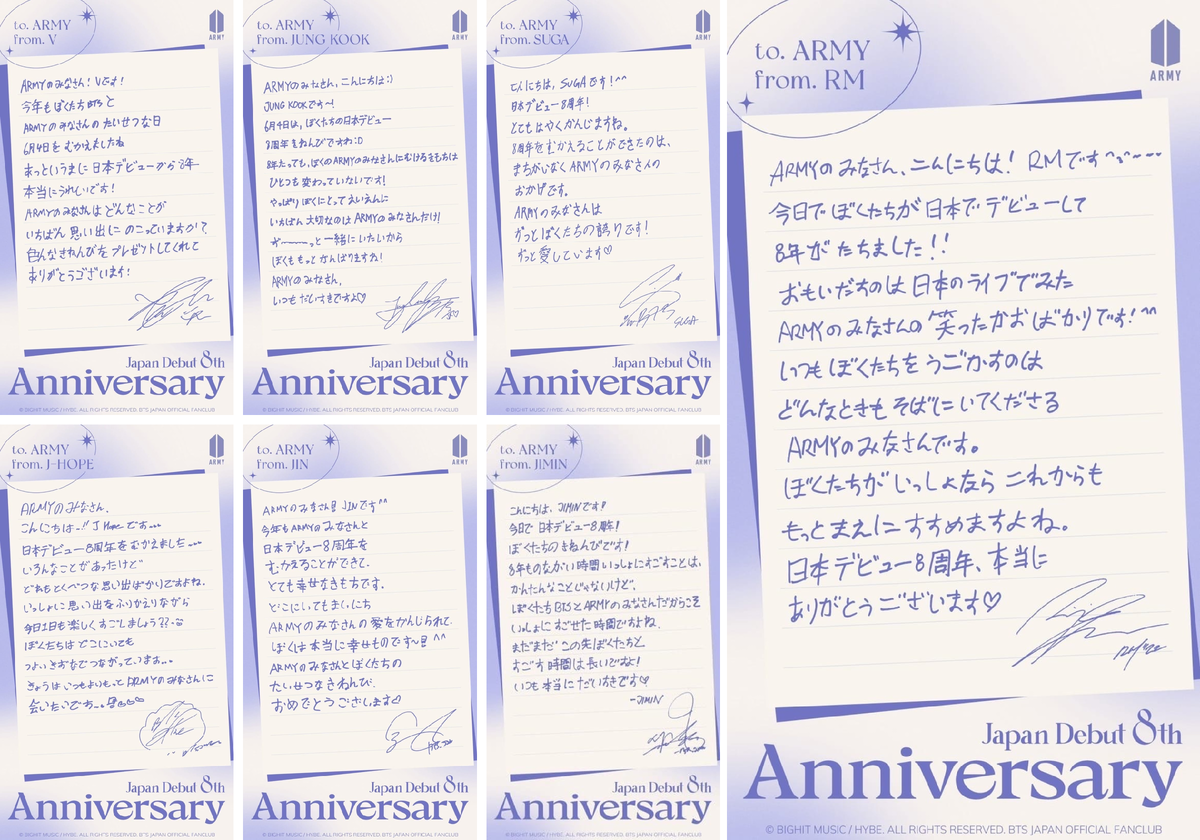 to. ARMY
from. V
ARMY
ARMYのみなさん! Vです!
今年もぼくたちBTSと
ARMYのみなさんの たいせつな日
6月4日を むかえましたね
あっというまに 日本デビューから 8年
本当にうれしいです!
ARMYのみなさんは どんなことが
いちばん 思い出に のこっていますか?
こんなきねんびを プレゼントしてくれて
ありがとうございます!
Japan Debut 8th
Anniversary
©BIGHIT MUSIC / HYBE. ALL RIGHTS RESERVED. BTS JAPAN OFFICIAL FANCLUB
to. ARMY
from. JUNG KOOK
ARMY
ARMYのみなさん、こんにちは:)
JUNG KOOKです〜!
6月4日は、ぼくたちの日本デビュー
8周年きねんびですね:D
8年たっても、ぼくのARMYのみなさんにむけるきもちは
ひとつも 変わっていないです!
やっぱり ぼくにとって えいえんに
いちばん 大切なのは ARMYのみなさんだけ!
ずーーーっと一緒にいたいから
ぼくももっと がんばりますね!
ARMYのみなさん、
いつも だいすきですよ♡
Japan Debut 8th
Anniversary
©BIGHIT MUSIC / HYBE. ALL RIGHTS RESERVED. BTS JAPAN OFFICIAL FANCLUB
to. ARMY
from. SUGA
ARMY
こんにちは、SUGAです!^^
日本デビュー8周年!
とてもはやくかんじますね。
8周年を むかえることができたのは、
まちがいなく ARMYのみなさんの
おかげです。
ARMYのみなさんは
ずっとぼくたちの誇りです!
ずっと愛しています♡
SUGA
Japan Debut 8th
Anniversary
©BIGHIT MUSIC / HYBE. ALL RIGHTS RESERVED. BTS JAPAN OFFICIAL FANCLUB
to. ARMY
from. RM
ARMY
ARMYのみなさん、こんにちは! RMです^~^----
今日で ぼくたちが 日本で デビューして
8年が たちました!!
おもいだすのは 日本の ライブでみた
ARMYのみなさんの 笑ったかお ばかりです!^^
いつも ぼくたちを うごかすのは
どんなときも そばに いてくださる
ARMYのみなさんです。
ぼくたちが いっしょなら これからも
もっと まえに すすめますよね。
日本 デビュー8周年、本当に
ありがとうございます♡
Japan Debut 8th
Anniversary
© BIGHIT MUSIC / HYBE. ALL RIGHTS RESERVED. BTS JAPAN OFFICIAL FANCLUB
to. ARMY
from. J-HOPE
ARMY
ARMYのみなさん、
こんにちは..!! J Hopeです...
日本デビュー8周年をむかえました...
いろんなことがあったけど
どれもとくべつな 思い出ばかりですよね.
いっしょに 思い出を ふりかえりながら
今日1日も楽しくすごしましょう??
ぼくたちは どこにいても
つよい きずなでつながっています...
きょうは いつもよりもって ARMYのみなさんに
会いたいです...
Japan Debut 8th
Anniversary
©BIGHIT MUSIC / HYBE. ALL RIGHTS RESERVED. BTS JAPAN OFFICIAL FANCLUB
to. ARMY
from. JIN
ARMY
ARMYのみなさん!! JINです^^
今年も ARMYのみなさんと
日本デビュー8周年を
むかえることができて、
とても 幸せなきもちです.
どこにいても まいにち
ARMYのみなさんの 愛をかんじられて
ぼくは 本当に 幸せものです〜!! ^^
ARMYのみなさんとぼくたちの
たいせつなきねんび
おめでとうございます♡
Japan Debut 8th
Anniversary
©BIGHIT MUSIC / HYBE. ALL RIGHTS RESERVED. BTS JAPAN OFFICIAL FANCLUB
to. ARMY
from. JIMIN
ARMY
こんにちは、JIMINです!
今日で 日本デビュー8周年!
ぼくたちの きねんびです!
8年ものながい時間 いっしょにすごすことは、
かんたんなことじゃないけど、
ぼくたち BTSとARMYのみなさんだからこそ
いっしょに すごせた 時間ですよね.
まだまだ この先ぼくたちと
すごす 時間は長いですよ!
いつも 本当に だいすきです♡
-JIMIN
Japan Debut 8th
Anniversary
©BIGHIT MUSIC / HYBE. ALL RIGHTS RESERVED. BTS JAPAN OFFICIAL FANCLUB